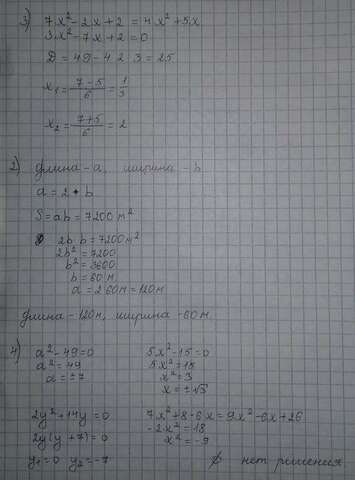 3) 7x² - 2x + 2 = 4x² + 5x
3x² - 7x + 2 = 0
D = 49 - 4 2 3 = 25
x₁ = (7-5)/6 = 1/3
x₂ = (7+5)/6 = 2
2) длина - a, ширина - b
a = 2 • b
S = ab = 7200 м²
2b b = 7200 м²
2b² = 7200
b² = 3600
b = 60 м
a = 2 60м = 120м
длина - 120м, ширина - 60м
4) a² - 49 = 0
a² = 49
a = ±7
5x² - 15 = 0
5x² = 15
x² = 3
x = ±√3
2y² + 14y = 0
2y(y + 7) = 0
y₁ = 0 y₂ = -7
7x² + 8 - 6x = 9x² - 6x + 26
-2x² = 18
x² = -9
∅ нет решения.